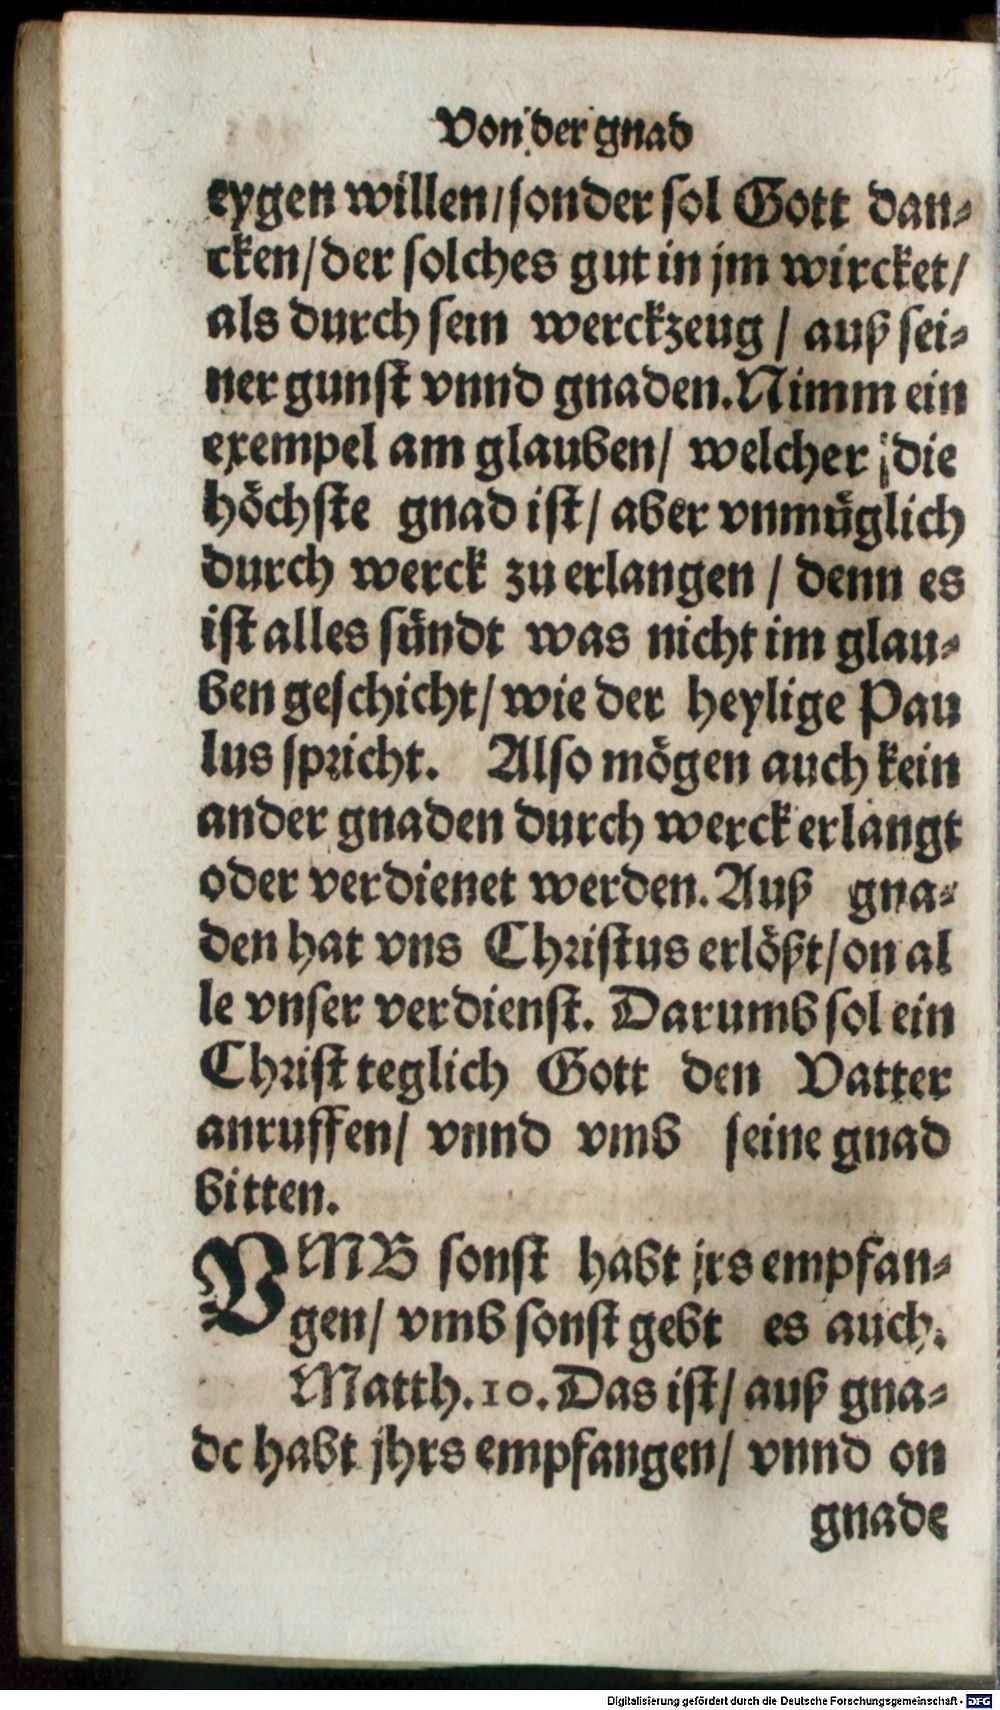 Von der gnad
eygen willen/ sonder sol Gott dan-
cken/ der solches gut in jm wircket/
als durch sein werckzeug / auß sei-
ner gunst vnnd gnaden. Nimm ein
exempel am glauben/ welcher die
höchste gnad ist/ aber vnmüglich
durch werck zu erlangen / denn es
ist alles sündt was nicht im glau-
ben geschicht/ wie der heylige Pau
lus spricht. Also mögen auch kein
ander gnaden durch werck erlangt
oder verdienet werden. Auß gna-
den hat vns Christus erlößt/ on al
le vnser verdienst. Darumb sol ein
Christ teglich Gott den Vatter
anruffen/ vnnd vmb seine gnad
bitten.
VMB sonst habt jrs empfan-
gen/ vmb sonst gebt es auch.
Matth. 10. Das ist/ auß gna-
de habt jhrs empfangen/ vnnd on
gnade
Digitalisierung gefördert durch die Deutsche Forschungsgemeinschaft - DFG